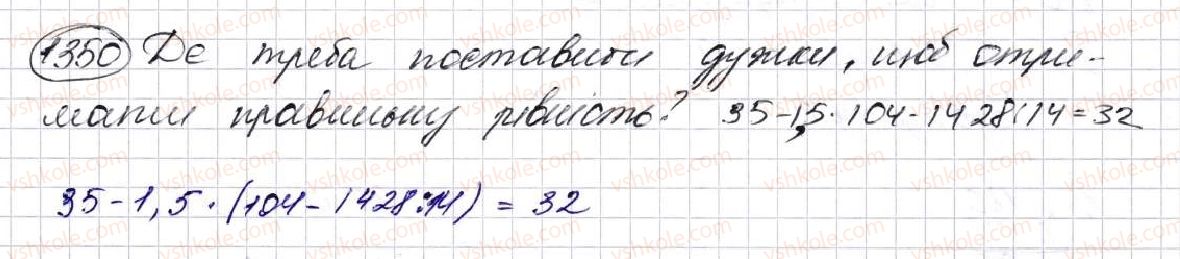 1350 Де треба поставити дужки, щоб отри-
мати правильну рівність? 35-1,5·104-1428:14=32
35-1,5·(104-1428:14)=32